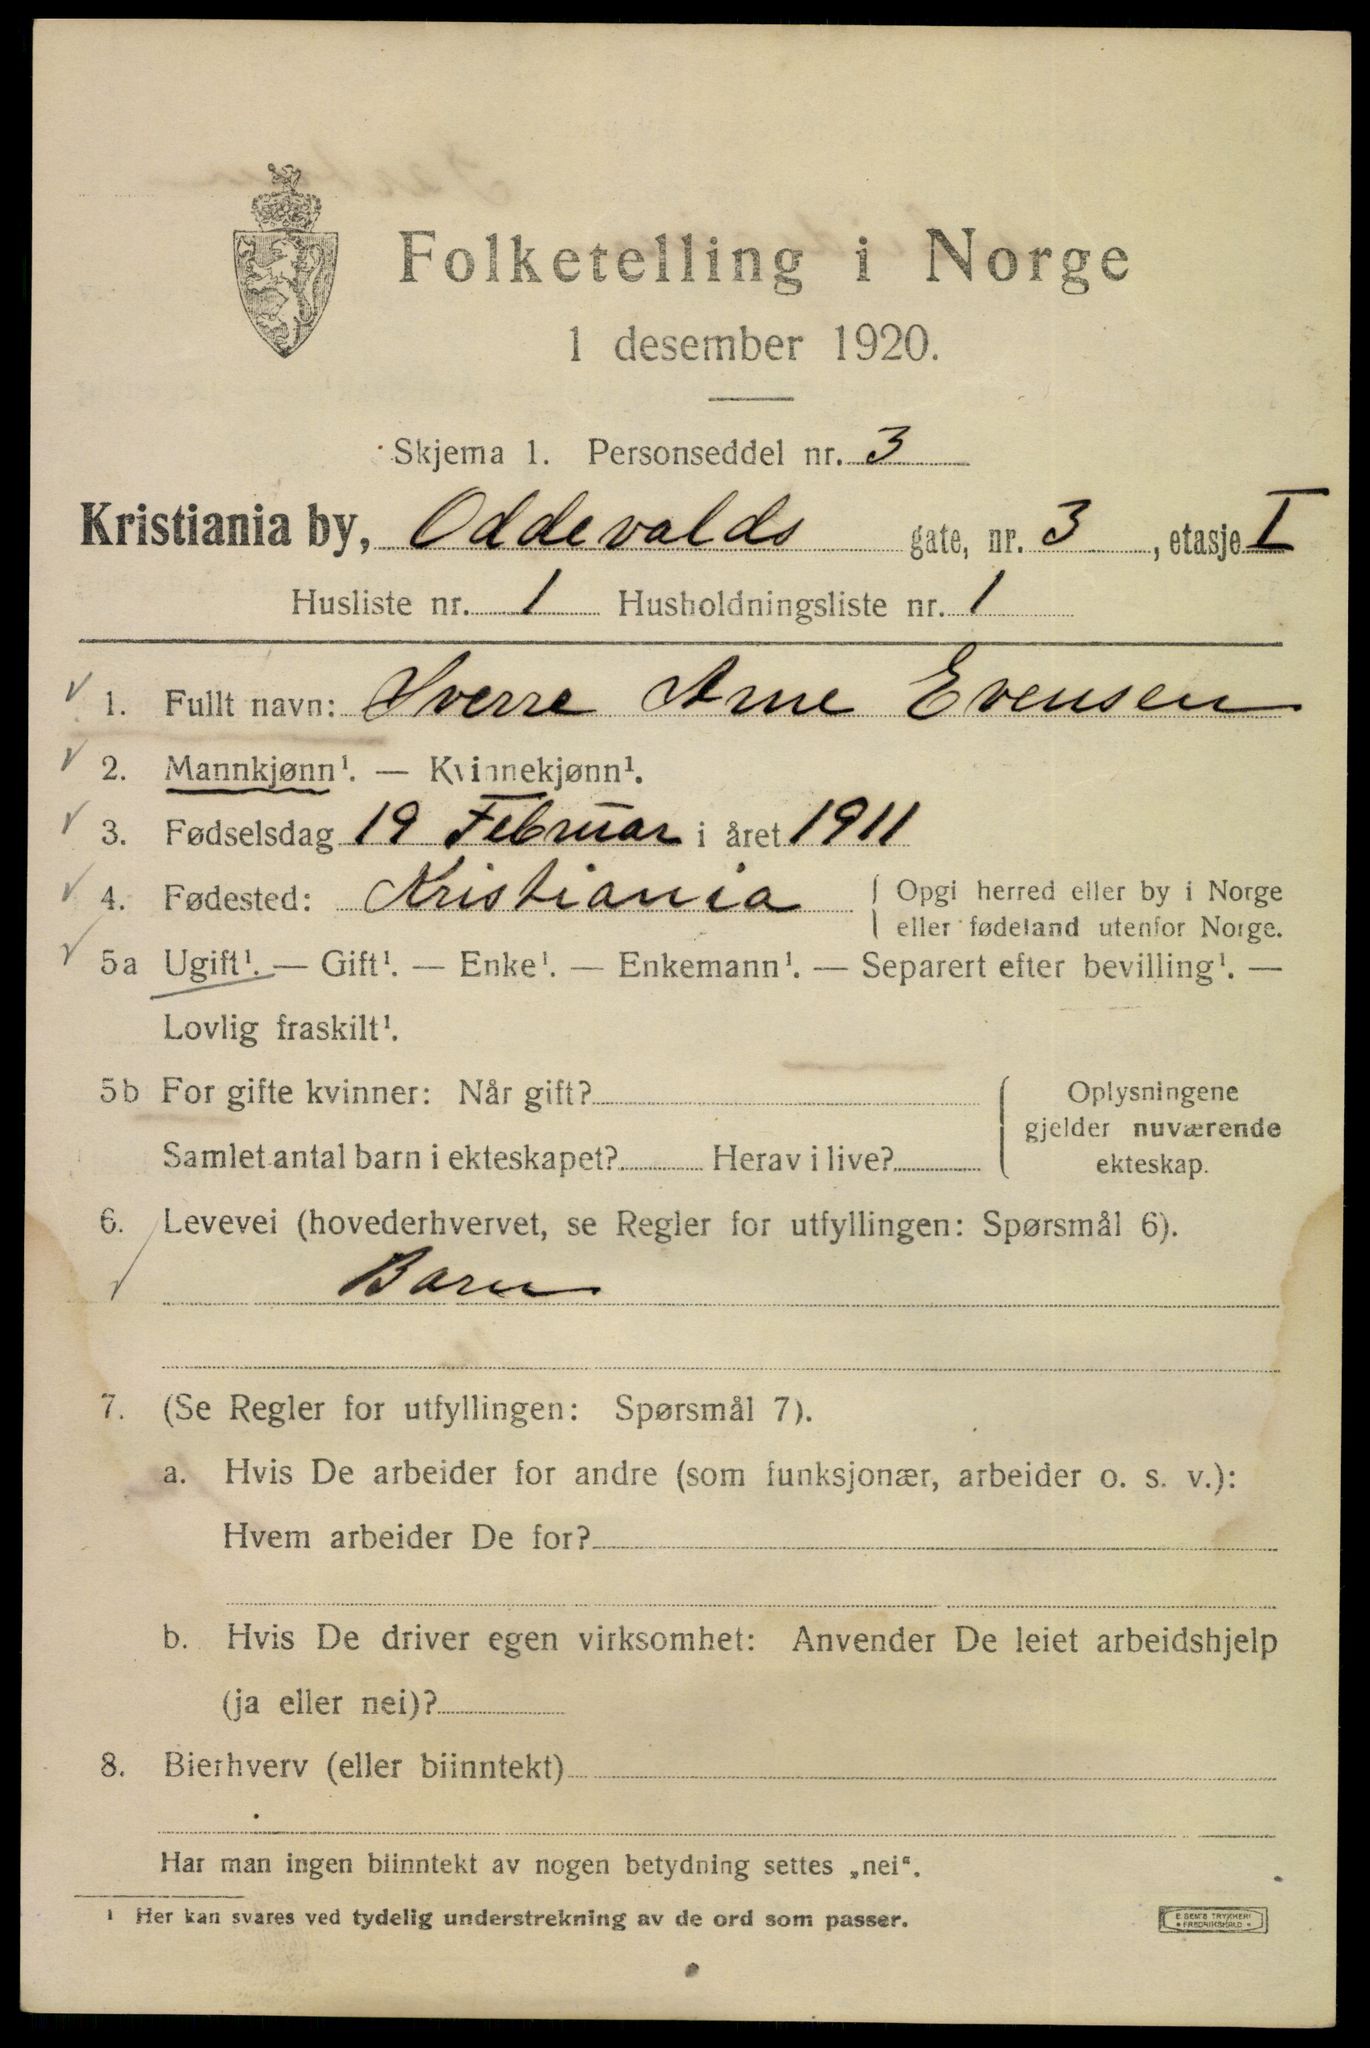 Folketelling i Norge
1 desember 1920.
Skjema 1. Personseddel nr. 3
Kristiania by, Oddevalds gate, nr. 3, etasje I
Husliste nr. 1 Husholdningsliste nr. 1
1. Fullt navn: Sverre Arne Evensen
2. Mannkjønn¹. — Kvinnekjønn¹.
3. Fødselsdag 19 Februar i året 1911
4. Fødested: Kristiania
Opgi herred eller by i Norge
eller fødeland utenfor Norge.
5a Ugift¹. — Gift¹. — Enke¹. — Enkemann¹. — Separert efter bevilling¹. —
Lovlig fraskilt¹.
5b For gifte kvinner: Når gift?
Samlet antal barn i ekteskapet? Herav i live?
Oplysningene
gjelder nuværende
ekteskap.
6. Levevei (hovederhvervet, se Regler for utfyllingen: Spørsmål 6).
Barn
7. (Se Regler for utfyllingen: Spørsmål 7).
a. Hvis De arbeider for andre (som funksjonær, arbeider o. s. v.):
Hvem arbeider De for?
b. Hvis De driver egen virksomhet: Anvender De leiet arbeidshjelp
(ja eller nei)?
8. Bierhverv (eller biinntekt)
Har man ingen biinntekt av nogen betydning settes „nei“.
¹ Her kan svares ved tydelig understrekning av de ord som passer.
E. SEM'S TRYKKERI
• FREDRIKSHALD •